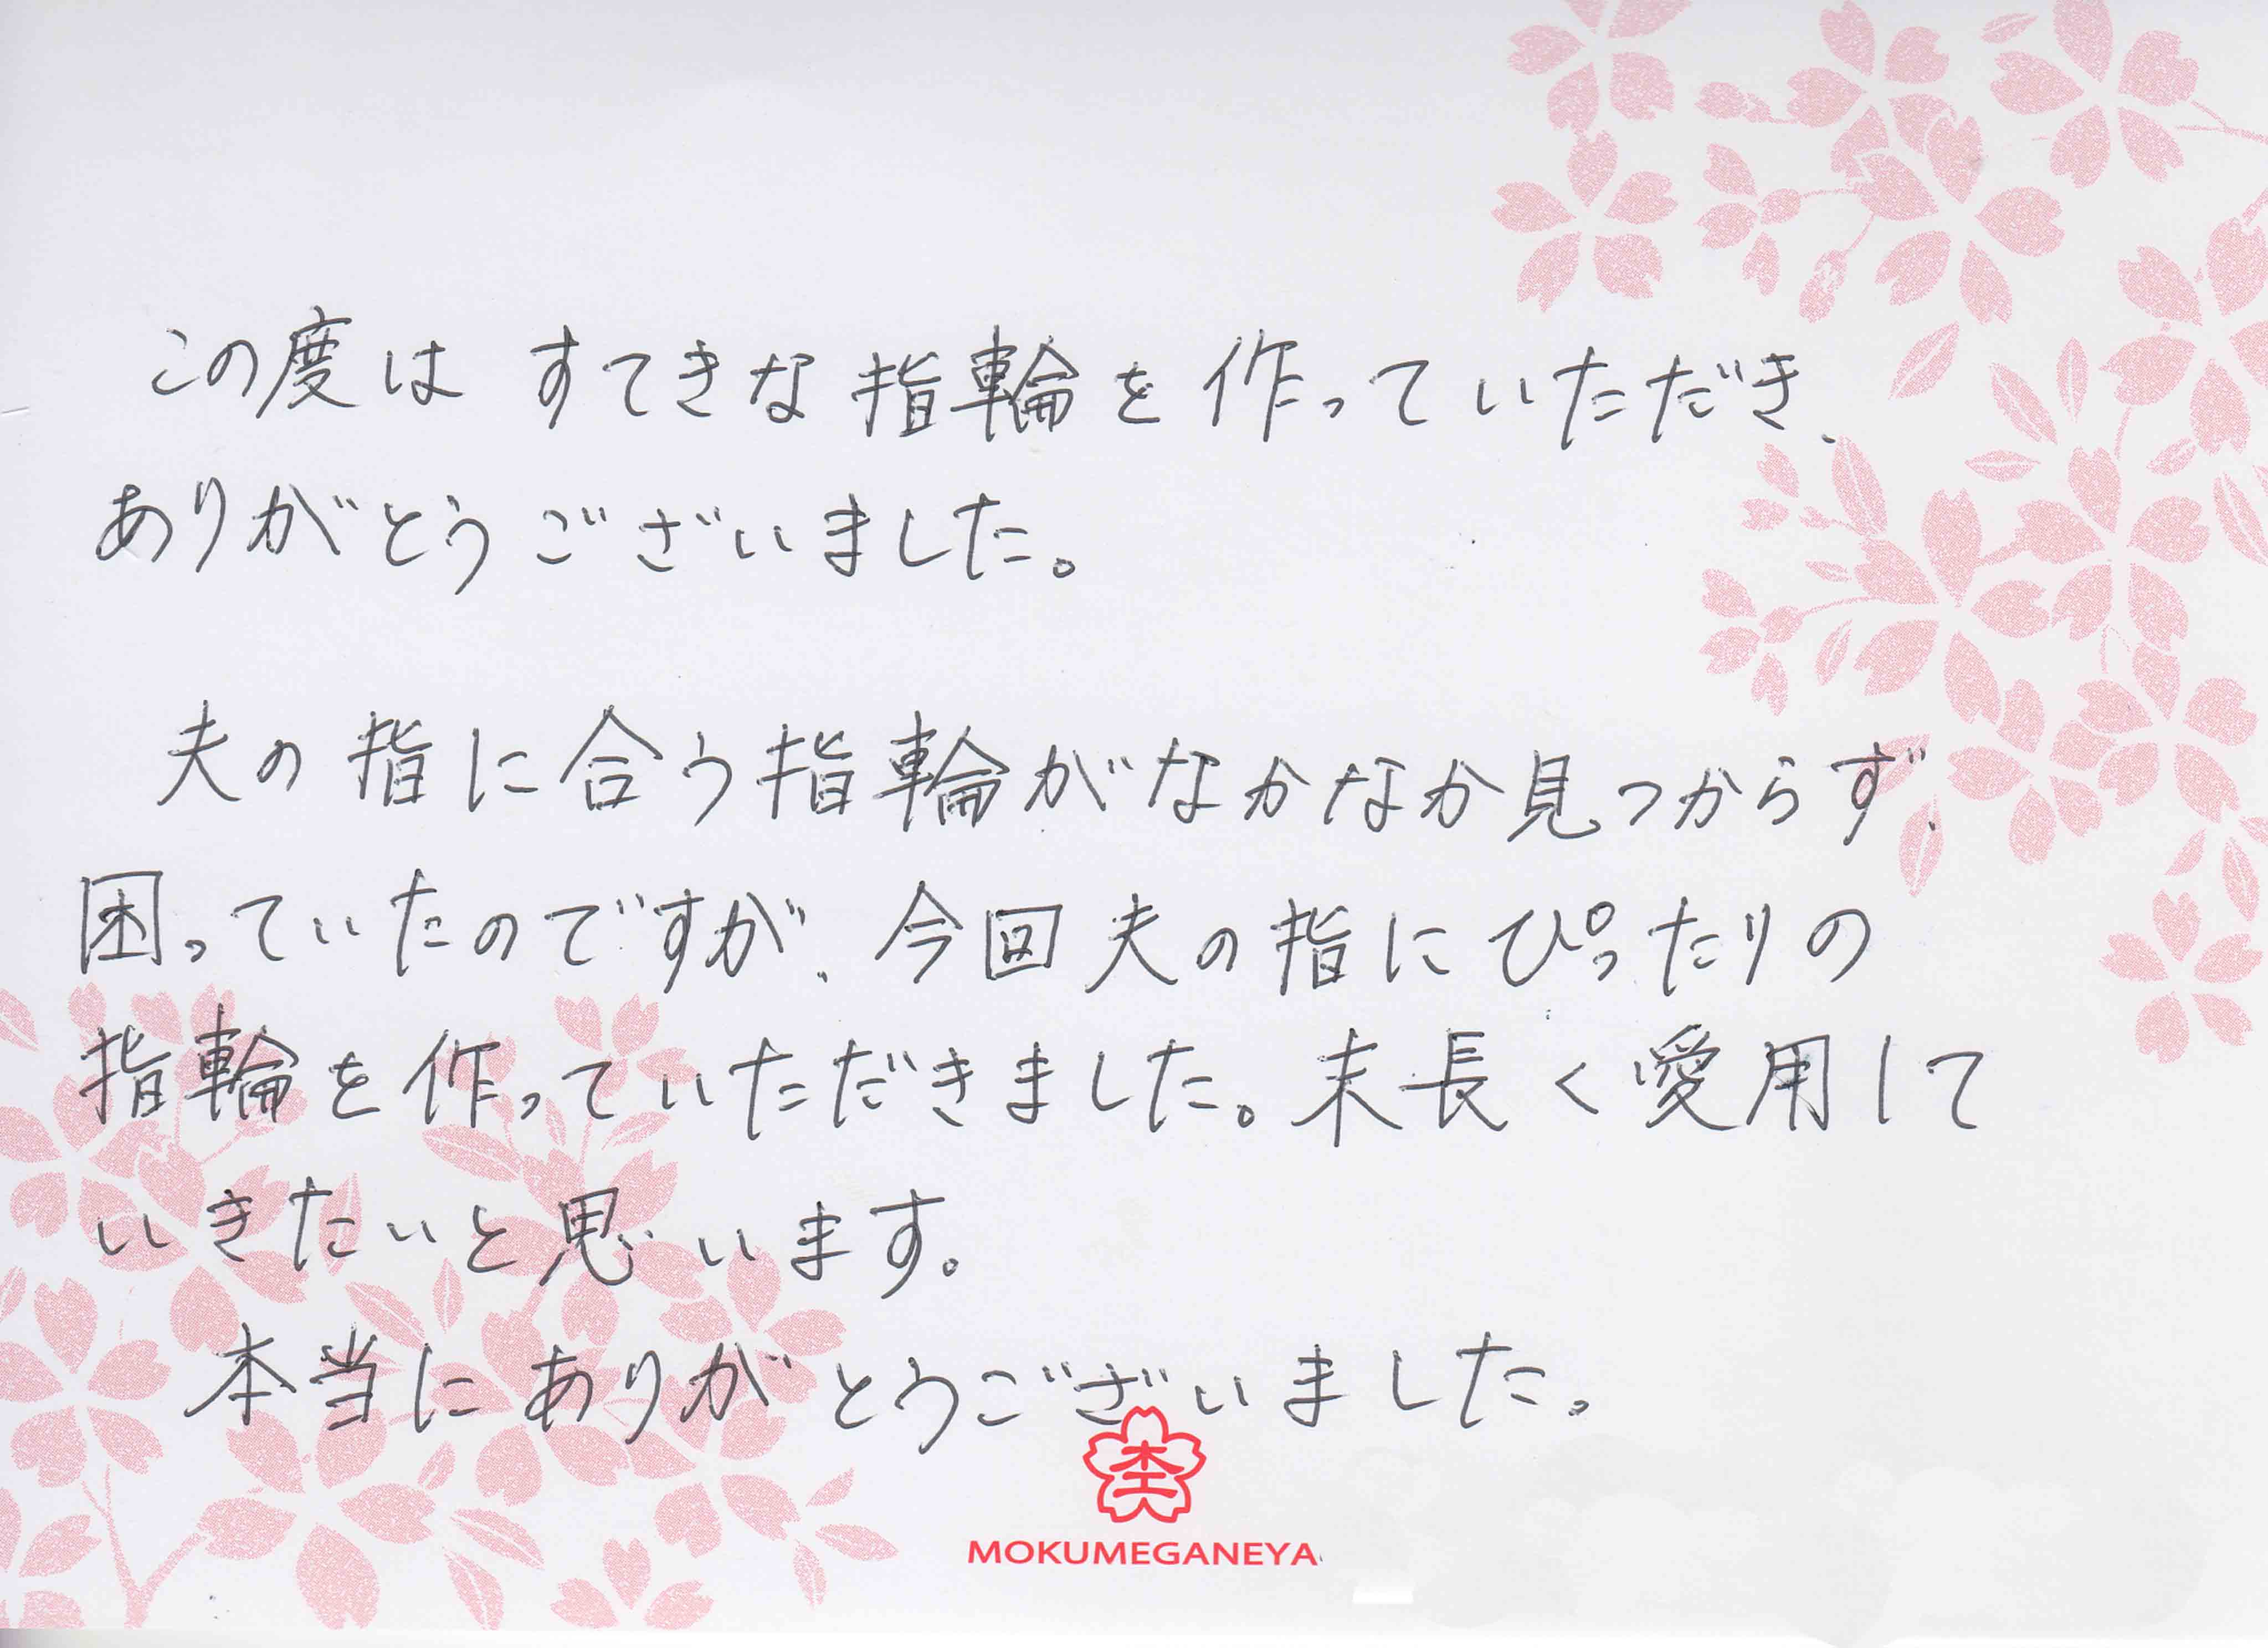 この度は すてきな指輪を作っていただき、
ありがとうございました。
夫の指に合う指輪がなかなか見つからず、
困っていたのですが、今回夫の指にぴったりの
指輪を作っていただきました。末長く愛用して
いきたいと思います。
本当にありがとうございました。
MOKUMEGANEYA